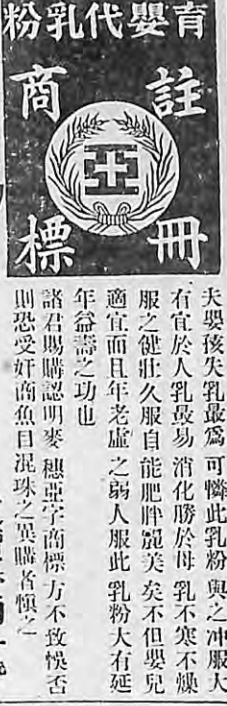 育嬰代乳粉
註冊商標
亞
夫嬰孩失乳最爲可憐此乳粉與之冲服大
有宜於人乳最易消化勝於母乳不寒不燥
服之健壯久服自能肥胖麗美矣不但嬰兒
適宜而且年老虛之弱人服此乳粉大有延
年益壽之功也
諸君賜購認明麥穗亞字商標方不致悞否
則恐受奸商魚目混珠之異購者愼之